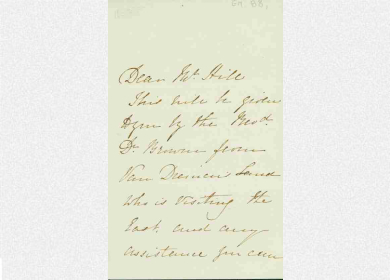 Dear Mr. Hill
This will be given
to you by the Revd.
Dr. Browne from
Van Diemens Land
who is visiting the
East. and any
assistance you can